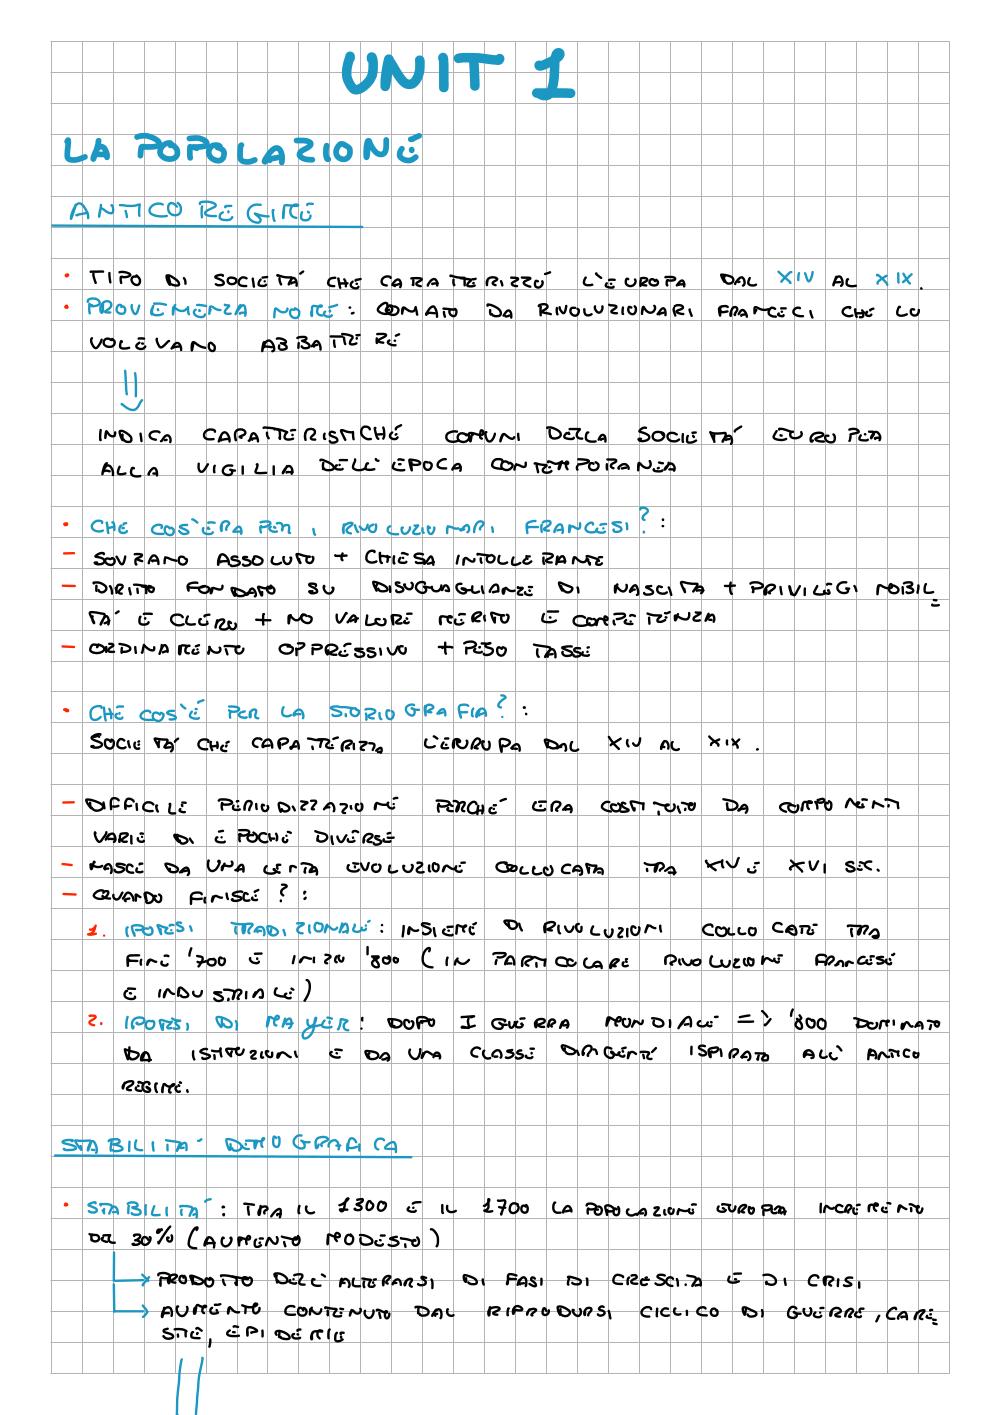 UNIT 1
LA POPOLAZIONE
ANTICO REGIME
• TIPO DI SOCIETA' CHE CARATTERIZZO' L'EUROPA DAL XIV AL XIX.
• PROVENIENZA NOME: CONIATO DA RIVOLUZIONARI FRANCECI CHE LO
VOLEVANO ABBATTERE
⇓
INDICA CARATTERISTICHE COMUNI DELLA SOCIETA' EUROPEA
ALLA VIGILIA DELL'EPOCA CONTEMPORANEA
• CHE COS'ERA PER I RIVOLUZIONARI FRANCESI?:
- SOVRANO ASSOLUTO + CHIESA INTOLLERANTE
- DIRITTO FONDATO SU DISUGUAGLIANZE DI NASCITA + PRIVILEGI NOBIL=
TA' E CLERO + NO VALORE MERITO E COMPETENZA
- ORDINAMENTO OPPRESSIVO + PESO TASSE
• CHE COS'È PER LA STORIOGRAFIA?:
SOCIETA' CHE CARATTERIZZA L'EUROPA DAL XIV AL XIX.
- DIFFICILE PERIODIZZAZIONE PERCHÉ ERA COSTITUITO DA COMPONENTI
VARIE DI EPOCHE DIVERSE
- NASCE DA UNA LENTA EVOLUZIONE COLLOCATA TRA XIV E XVI SEC.
- QUANDO FINISCE?:
1. IPOTESI TRADIZIONALE: INSIEME DI RIVOLUZIONI COLLOCATE TRA
FINE '700 E INIZIO '800 (IN PARTICOLARE RIVOLUZIONE FRANCESE
E INDUSTRIALE)
2. IPOTESI DI MAYER: DOPO I GUERRA MONDIALE => '800 DOMINATO
DA ISTITUZIONI E DA UNA CLASSE DIRIGENTE ISPIRATO ALL'ANTICO
REGIME.
STABILITA' DEMOGRAFICA
• STABILITA': TRA IL 1300 E IL 1700 LA POPOLAZIONE EUROPEA INCREMENTO
DEL 30% (AUMENTO MODESTO)
PRODOTTO DELL'ALTERARSI DI FASI DI CRESCITA E DI CRISI
AUMENTO CONTENUTO DAL RIPRODURSI CICLICO DI GUERRE, CARE=
STIE, EPIDEMIE